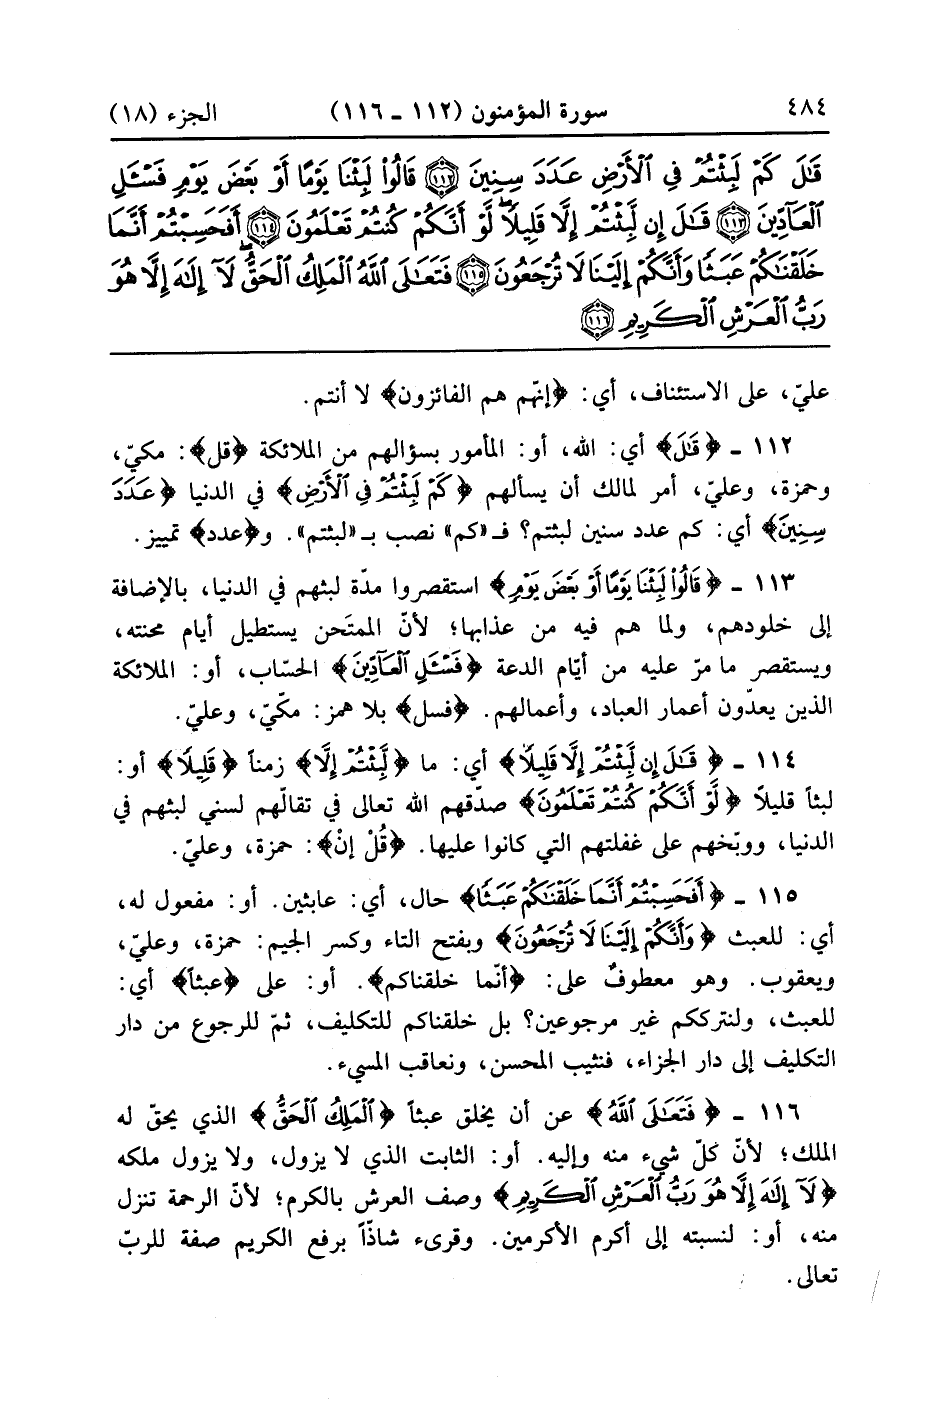 ٤٨٤ سورة المؤمنون (١١٢ - ١١٦) الجزء (١٨)
قَٰلَ كَمْ لَبِثْتُمْ فِي ٱلْأَرْضِ عَدَدَ سِنِينَ ١١٢ قَالُوا۟ لَبِثْنَا يَوْمًا أَوْ بَعْضَ يَوْمٍ فَسْـَٔلِ
ٱلْعَآدِّينَ ١١٣ قَٰلَ إِن لَّبِثْتُمْ إِلَّا قَلِيلًا ۖ لَّوْ أَنَّكُمْ كُنتُمْ تَعْلَمُونَ ١١٤ أَفَحَسِبْتُمْ أَنَّمَا
خَلَقْنَٰكُمْ عَبَثًا وَأَنَّكُمْ إِلَيْنَا لَا تُرْجَعُونَ ١١٥ فَتَعَٰلَى ٱللَّهُ ٱلْمَلِكُ ٱلْحَقُّ ۖ لَآ إِلَٰهَ إِلَّا هُوَ
رَبُّ ٱلْعَرْشِ ٱلْكَرِيمِ ١١٦
عليّ، على الاستئناف، أي: ﴿إنّهم هم الفائزون﴾ لا أنتم.
١١٢ - ﴿قَٰلَ﴾ أي: الله، أو: المأمور بسؤالهم من الملائكة ﴿قل﴾: مكيّ،
وحمزة، وعليّ، أمر لمالك أن يسألهم ﴿كَمْ لَبِثْتُمْ فِي ٱلْأَرْضِ﴾ في الدنيا ﴿عَدَدَ
سِنِينَ﴾ أي: كم عدد سنين لبثتم؟ فـ «كم» نصب بـ «لبثتم». و﴿عدد﴾ تمييز.
١١٣ - ﴿قَالُوا۟ لَبِثْنَا يَوْمًا أَوْ بَعْضَ يَوْمٍ﴾ استقصروا مدّة لبثهم في الدنيا، بالإضافة
إلى خلودهم، ولما هم فيه من عذابها؛ لأنّ الممتَحن يستطيل أيام محنته،
ويستقصر ما مرّ عليه من أيّام الدعة ﴿فَسْـَٔلِ ٱلْعَآدِّينَ﴾ الحسّاب، أو: الملائكة
الذين يعدّون أعمار العباد، وأعمالهم. ﴿فسل﴾ بلا همز: مكّيّ، وعليّ.
١١٤ - ﴿قَٰلَ إِن لَّبِثْتُمْ إِلَّا قَلِيلًا﴾ أي: ما ﴿لَّبِثْتُمْ إِلَّا﴾ زمناً ﴿قَلِيلًا﴾ أو:
لبثاً قليلاً ﴿لَّوْ أَنَّكُمْ كُنتُمْ تَعْلَمُونَ﴾ صدّقهم الله تعالى في تقالّهم لسني لبثهم في
الدنيا، ووبّخهم على غفلتهم التي كانوا عليها. ﴿قُلْ إنْ﴾: حمزة، وعليّ.
١١٥ - ﴿أَفَحَسِبْتُمْ أَنَّمَا خَلَقْنَٰكُمْ عَبَثًا﴾ حال، أي: عابثين. أو: مفعول له،
أي: للعبث ﴿وَأَنَّكُمْ إِلَيْنَا لَا تُرْجَعُونَ﴾ وبفتح التاء وكسر الجيم: حمزة، وعليّ،
ويعقوب. وهو معطوفٌ على: ﴿أنّما خلقناكم﴾. أو: على ﴿عبثاً﴾ أي:
للعبث، ولنترككم غير مرجوعين؟ بل خلقناكم للتكليف، ثمّ للرجوع من دار
التكليف إلى دار الجزاء، فنثيب المحسن، ونعاقب المسيء.
١١٦ - ﴿فَتَعَٰلَى ٱللَّهُ﴾ عن أن يخلق عبثاً ﴿ٱلْمَلِكُ ٱلْحَقُّ﴾ الذي يحقّ له
الملك؛ لأنّ كلّ شيء منه وإليه. أو: الثابت الذي لا يزول، ولا يزول ملكه
﴿لَآ إِلَٰهَ إِلَّا هُوَ رَبُّ ٱلْعَرْشِ ٱلْكَرِيمِ﴾ وصف العرش بالكرم؛ لأنّ الرحمة تنزل
منه، أو: لنسبته إلى أكرم الأكرمين. وقرىء شاذّاً برفع الكريم صفة للربّ
تعالى.